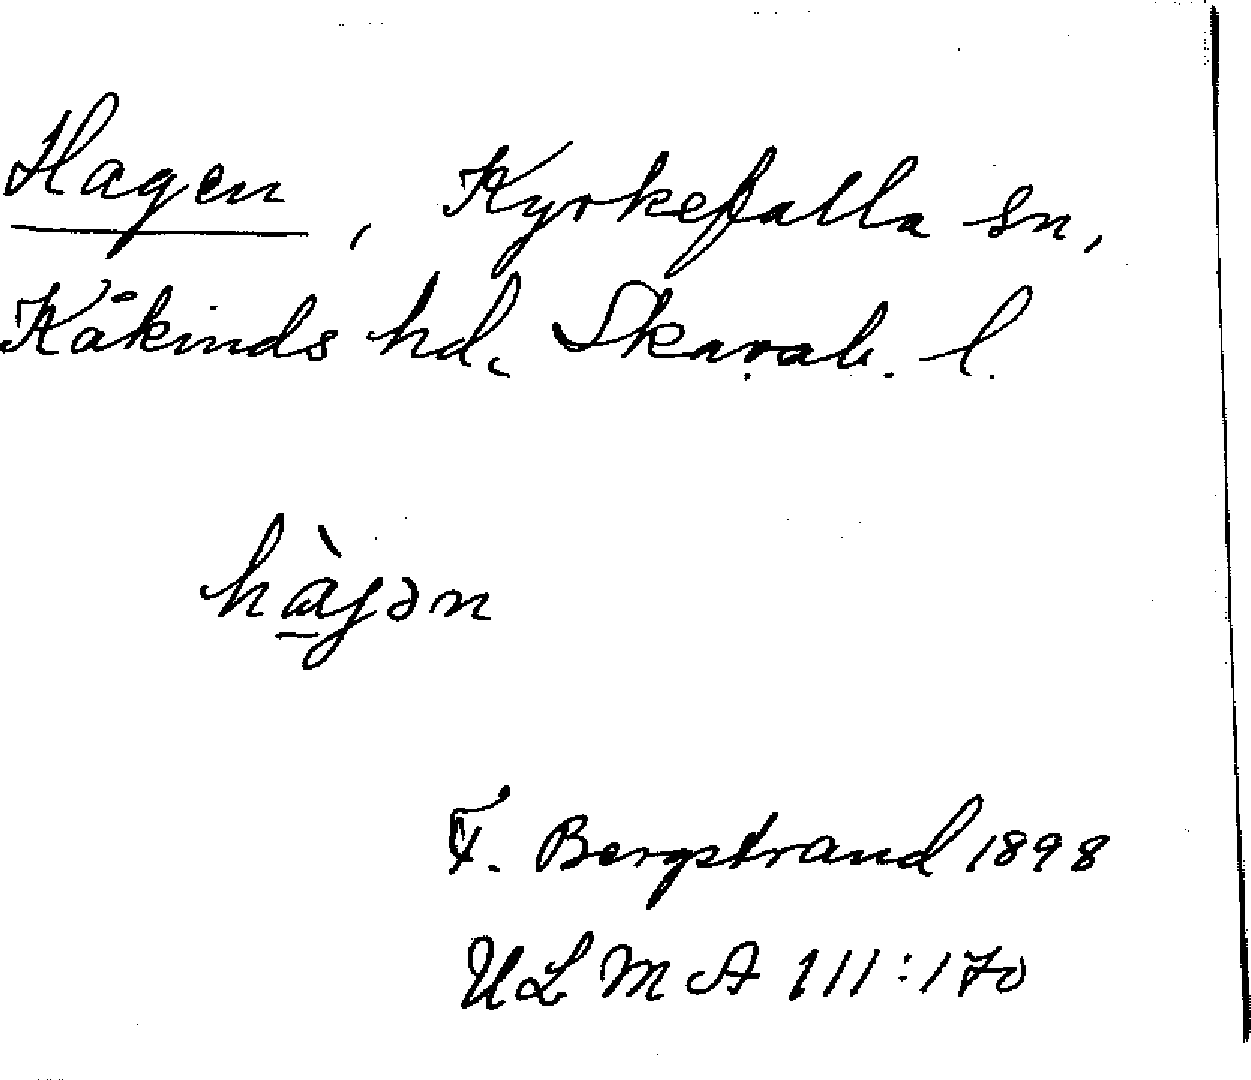 Hagen, Kyrkefalla sn,
Kåkinds hd. Skarab. l.
hàjən
F. Bergstrand 1898
ULMA 111:170